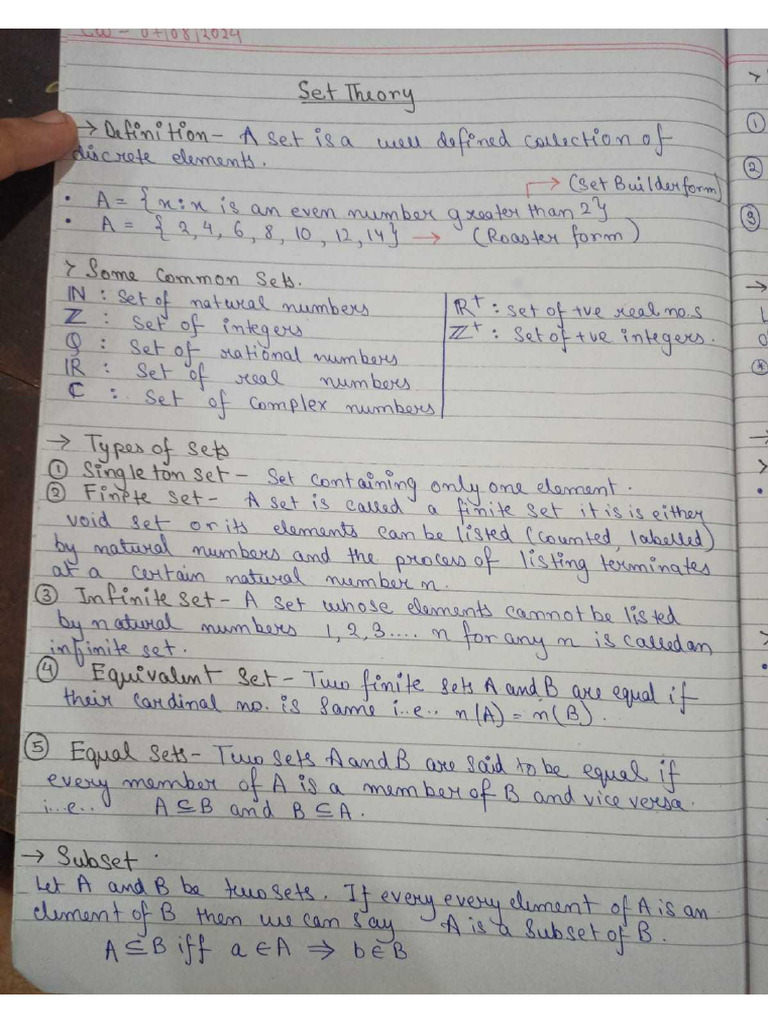 CW - 07/08/2024
Set Theory
→ Definition - A set is a well defined collection of
discrete elements.
→ (Set Builder form)
• A = {x : x is an even number greater than 2}
• A = { 2, 4, 6, 8, 10, 12, 14} → (Roaster form)
> Some Common Sets.
ℕ : Set of natural numbers
ℤ : Set of integers
ℚ : Set of rational numbers
ℝ : Set of real numbers
ℂ : Set of complex numbers
ℝ⁺ : set of +ve real no.s
ℤ⁺ : Set of +ve integers.
→ Types of Sets
① Singleton set - Set containing only one element.
② Finite set - A set is called a finite set it is is either
void set or its elements can be listed (counted, labelled)
by natural numbers and the process of listing terminates
at a certain natural number n.
③ Infinite set - A set whose elements cannot be listed
by natural numbers 1, 2, 3.... n for any n is called an
infinite set.
④ Equivalent Set - Two finite sets A and B are equal if
their cardinal no. is same i..e.. n(A) = n(B).
⑤ Equal Sets - Two sets A and B are said to be equal if
every member of A is a member of B and vice versa.
i..e.. A ⊆ B and B ⊆ A.
→ Subset.
Let A and B be two sets. If every every element of A is an
element of B then we can say A is a Subset of B.
A ⊆ B iff a ∈ A ⇒ b ∈ B